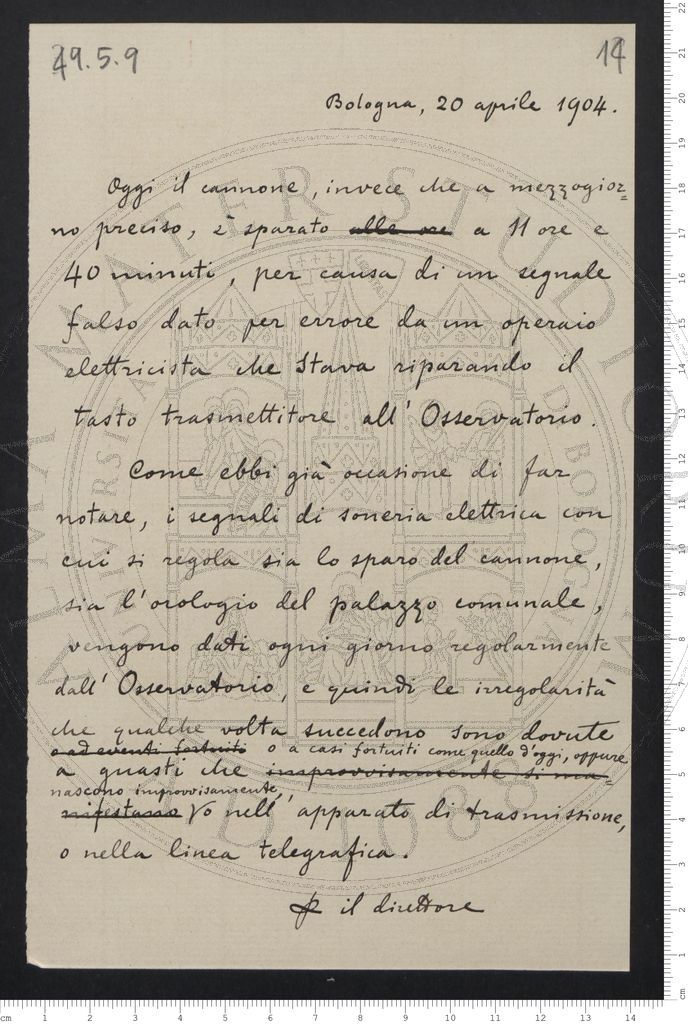 49.5.9
14
Bologna, 20 aprile 1904.
Oggi il cannone, invece che a mezzogior=
no preciso, è sparato alle ore a 11 ore e
40 minuti, per causa di un segnale
falso dato per errore da un operaio
elettricista che stava riparando il
tasto trasmettitore all' Osservatorio.
Come ebbi già occasione di far
notare, i segnali di soneria elettrica con
cui si regola sia lo sparo del cannone,
sia l'orologio del palazzo comunale,
vengono dati ogni giorno regolarmente
dall' Osservatorio, e quindi le irregolarità
che qualche volta succedono sono dovute
o ad eventi fortuiti o a casi fortuiti come quello d'oggi, oppure
a guasti che improvvisamente si ma=
nascono improvvisamente,
nifestano o nell' apparato di trasmissione,
o nella linea telegrafica.
il direttore